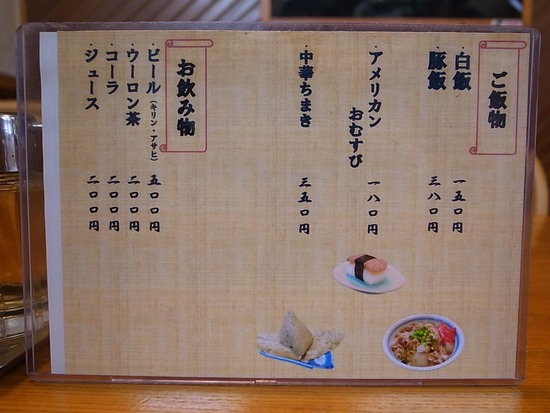 ご飯物
・白飯 一五〇円
・豚飯 三八〇円
・アメリカン
おむすび 一八〇円
・中華ちまき 三五〇円
お飲み物
・ビール（キリン・アサヒ） 五〇〇円
・ウーロン茶 二〇〇円
・コーラ 二〇〇円
・ジュース 二〇〇円